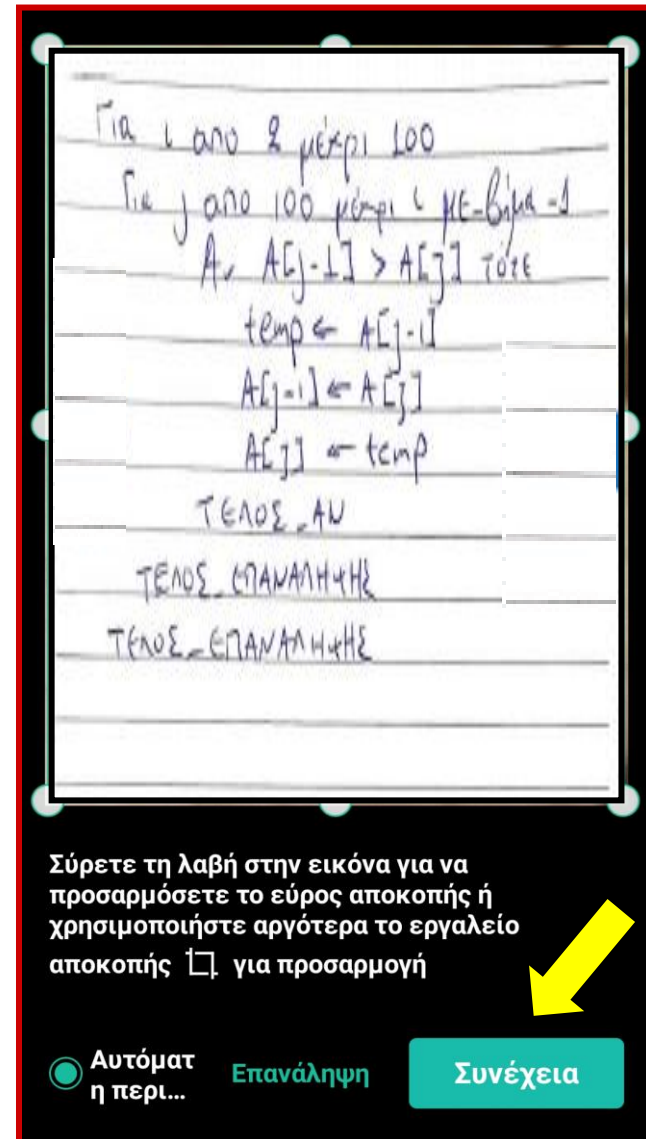 Για ι απο 2 μέχρι 100
Για j απο 100 μέχρι ι με_βήμα -1
Αν A[j-1] > A[j] τότε
temp ← A[j-1]
A[j-1] ← A[j]
A[j] ← temp
ΤΕΛΟΣ_ΑΝ
ΤΕΛΟΣ_ΕΠΑΝΑΛΗΨΗΣ
ΤΕΛΟΣ_ΕΠΑΝΑΛΗΨΗΣ
Σύρετε τη λαβή στην εικόνα για να
προσαρμόσετε το εύρος αποκοπής ή
χρησιμοποιήστε αργότερα το εργαλείο
αποκοπής για προσαρμογή
Αυτόματ
η περι...
Επανάληψη
Συνέχεια